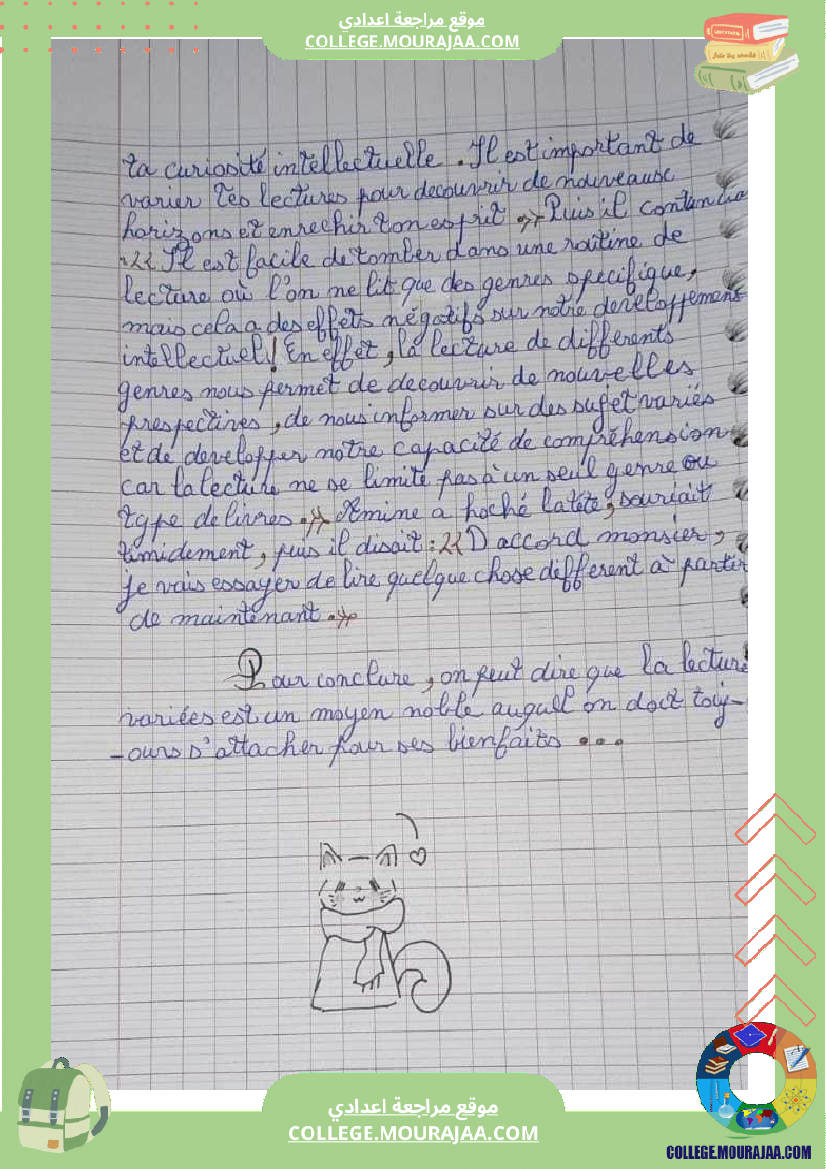 موقع مراجعة اعدادي
COLLEGE.MOURAJAA.COM
ta curiosité intellectuelle . Il est important de
varier tes lectures pour decouvrir de nouveause
horizons et enrechir ton esprit >> Puis il contenua
<< Il est facile de tomber dans une routine de
lecture où l'on ne lit que des genres specifique,
mais cela a des effets négatifs sur notre developpement
intellectuel! En effet, la lecture de differents
genres nous permet de decouvrir de nouvelles
prespectives, de nous informer sur des sujet variés
et de developper notre capacité de compréhension
car la lecture ne se limite pas à un seul genre ou
type de livres .>> Amine a hoché la tête, souriait
timidement, puis il disait : << D'accord monsier,
je vais essayer de lire quelque chose different à partir
de maintenant .>>
Pour conclure, on peut dire que la lecture
variées est un moyen noble auquel on doit touj-
-ours s'attacher pour ses bienfaits ...
موقع مراجعة اعدادي
COLLEGE.MOURAJAA.COM
COLLEGE.MOURAJAA.COM